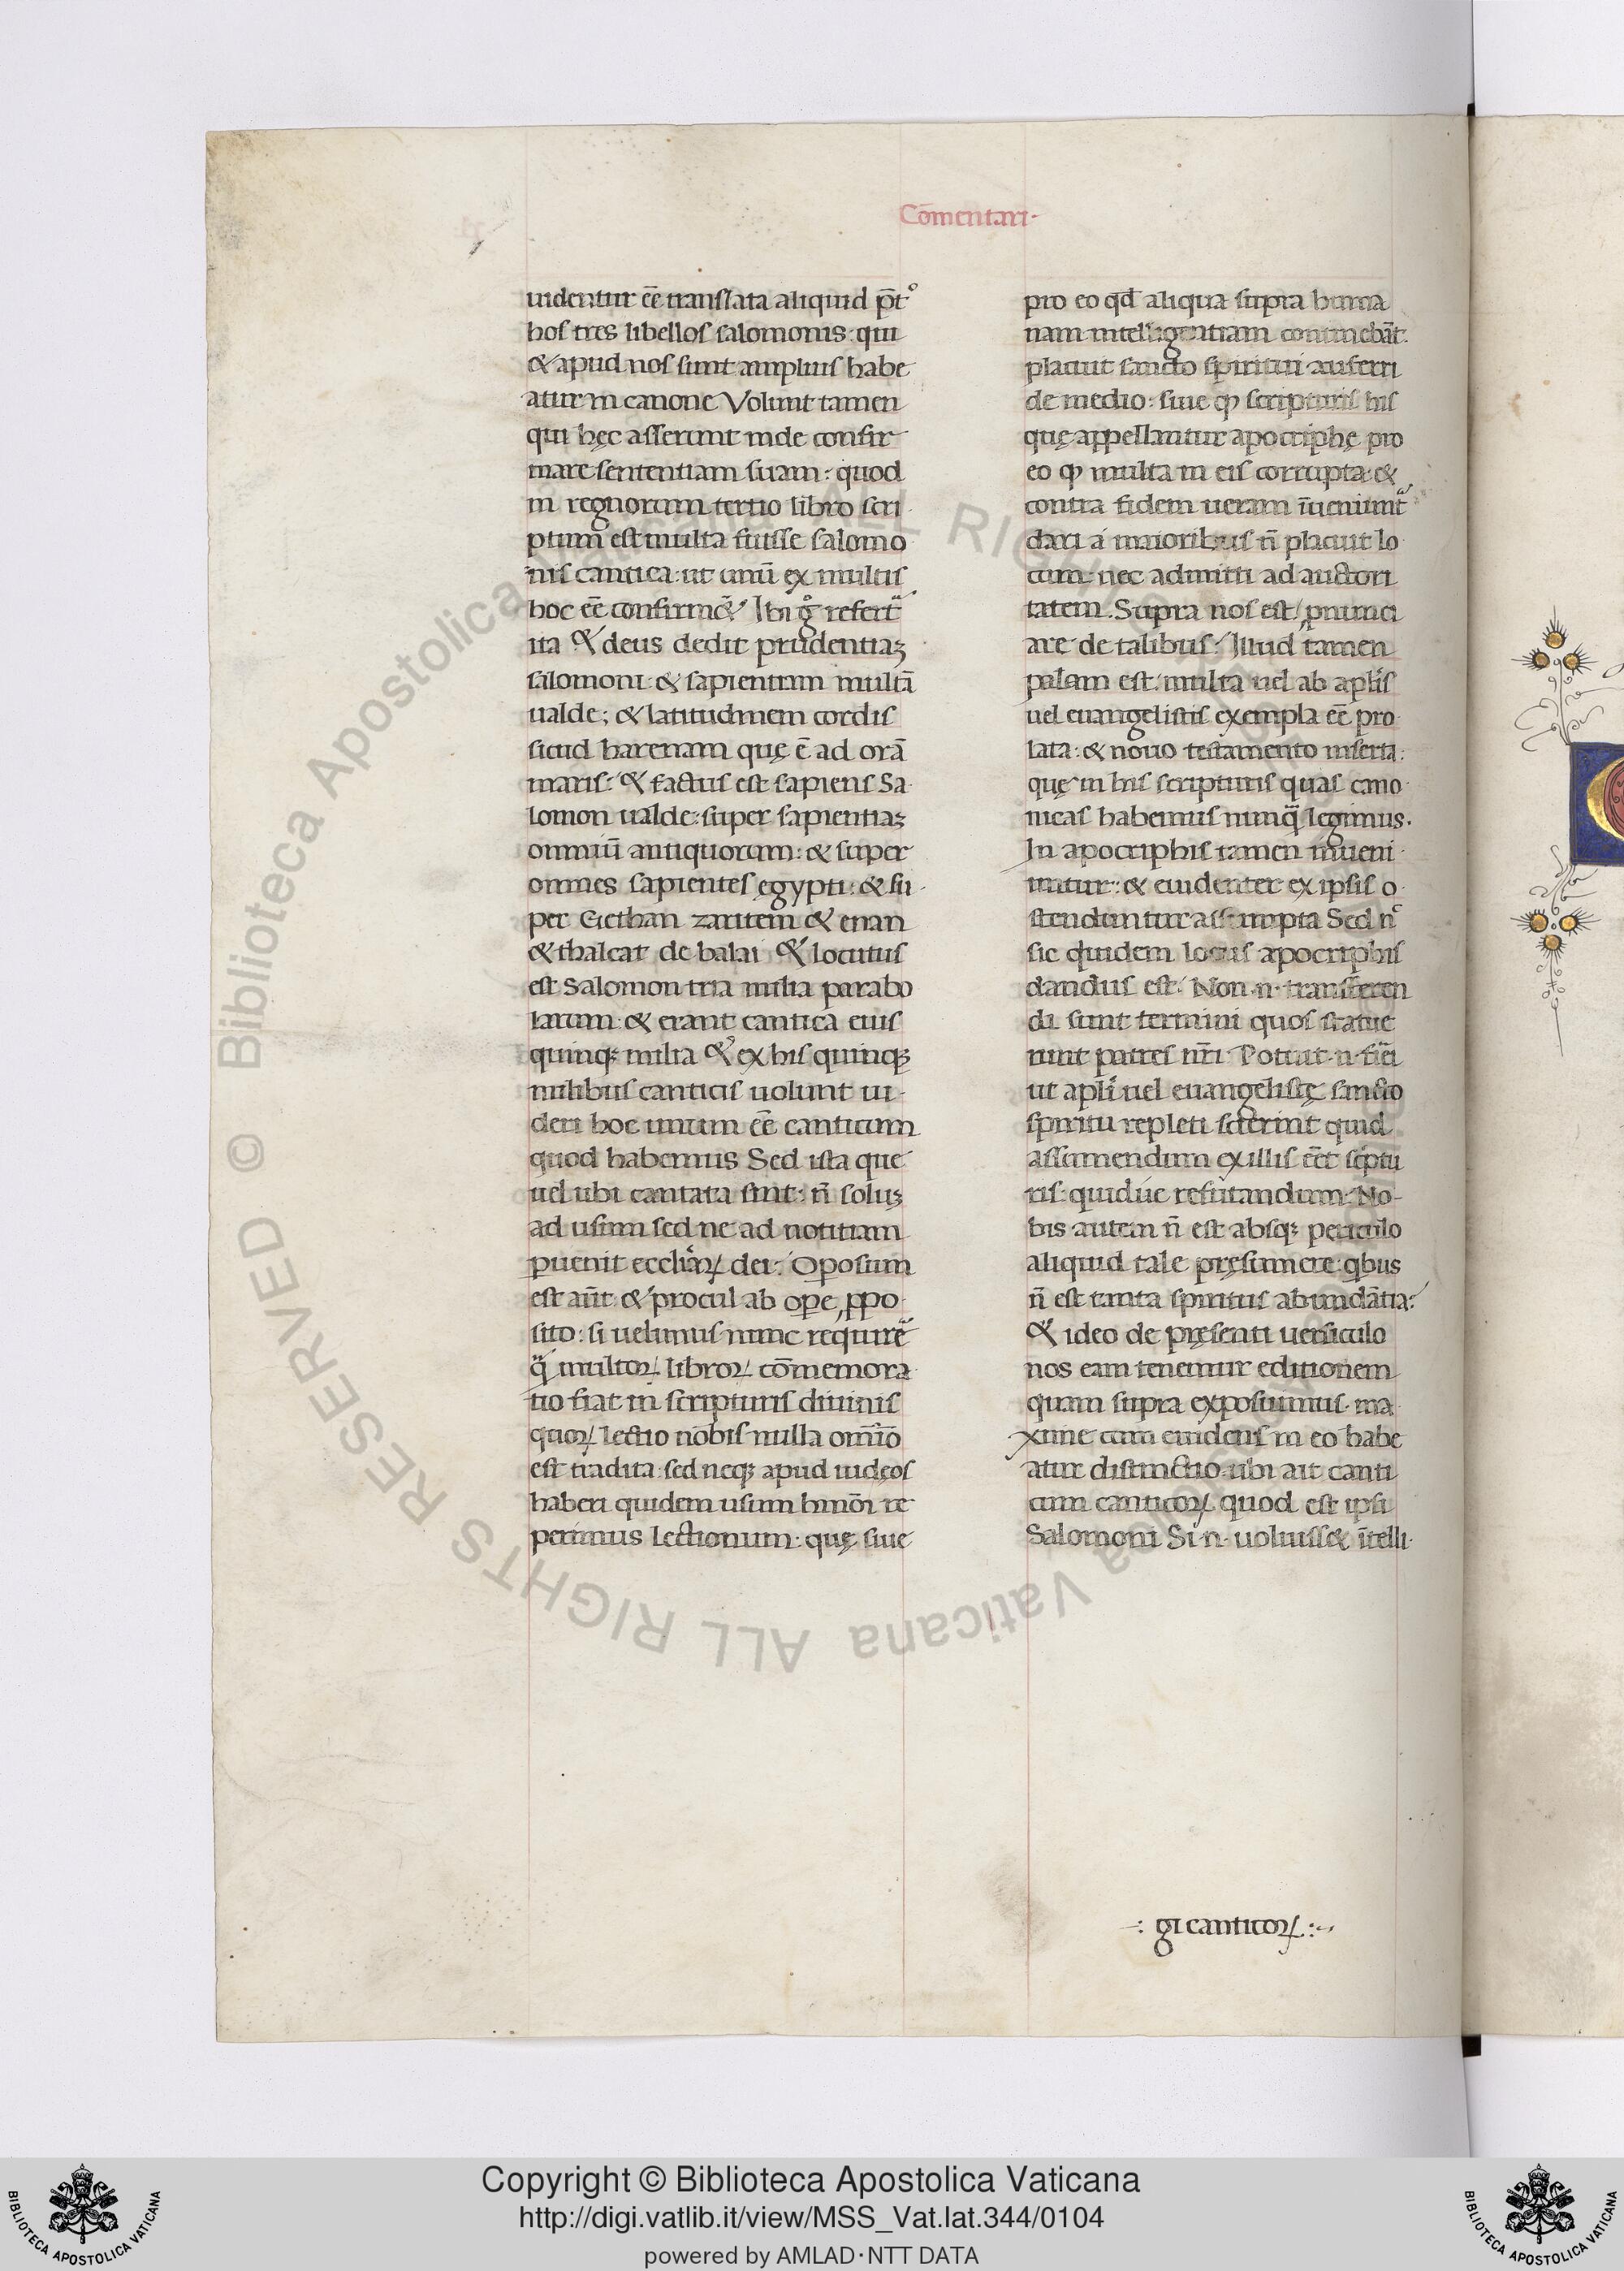 Cōmentari·
uidentur eē translata aliquid p̄tͦ
hos tres libellos salomonis: qui
& apud nos sunt amplius habe
atur in canone Volunt tamen
qui hęc asserunt inde confir
mare sententiam suam: quod
in regnorum tertio libro scri
ptum est multa fuisse salomo
nis cantica: ut unū ex multis
hoc eē confirmē& Ibi gͦ refert̄
ita & deus dedit prudentiaꝫ
salomoni & sapientiam multā
ualde; & latitudinem cordis
sicud harenam quę ē ad orā
maris: & factus est sapiens Sa
lomon ualde: super sapientiaꝫ
omniū antiquorum: & super
omnes sapientes egypti: & su
per Giethan zaritem & enan
& thalcat de balai & locutus
est Salomon tria milia parabo
larum & erant cantica eius
quinqꝫ milia & ex his quinqꝫ
milibus canticis uolunt ui
deri hoc unum eē canticum
quod habemus Sed ista que
uel ubi cantata sint: n̄ soluꝫ
ad usum sed ne ad notitiam
ꝑuenit eccliaꝝ dei: Operosum
est aūt & procul ab oꝑe ꝓpo
sito: si uelimus nunc requirē
q̈ multoꝝ libroꝝ cōmemora
tio fiat in scripturis diuinis
quoꝝ lectio nobis nulla om̄īo
est tradita: sed neqꝫ apud iudęos
haberi quidem usum hm̄ōi re
perimus lectionum: quę siue
pro eo qd̄ aliqua supra huma
nam intelligentiam continebāt
placuit sancto spiritui auferri
de medio: siue ꝙ scripturis his
quę appellantur apocriphę pro
eo ꝙ multa in eis corrupta &
contra fidem ueram īueniunt̄
dari a maioribus n̄ placuit lo
cum: nec admitti ad auctori
tatem. Supra nos est ꝓnunci
are de talibus: Illud tamen
palam est: multa uel ab apl̄is
uel euangelistis exempla eē pro
lata: & nouo testamento inserta:
quę in his scripturis quas cano
nicas habemus nunq̄ legimus.
In apocriphis tamen inueni
untur: & euidenter ex ipsis o
stenduntur assumpta Sed nͨ
sic quidem locus apocriphis
dandus est: Non·n·transferen
di sunt termini quos statue
runt patres nr̄i Potuit·n·fiēi
ut apl̄i uel euangelistę sancto
spiritu repleti scierint quid
assumendum ex illis eēt scptu
ris: quidue refutandum: No
bis autem n̄ est absqꝫ periculo
aliquid tale pręsumere: qbus
n̄ est tanta spiritus abundātia:
& ideo de pręsenti uersiculo
nos eam tenemur editionem
quam supra exposuimus. ma
xime cum euidens in eo habe
atur distinctio ubi ait canti
cum canticoꝝ quod est ipsi
Salomoni Si·n·uoluiss& ītelli
gi canticoꝝ
Copyright © Biblioteca Apostolica Vaticana
http://digi.vatlib.it/view/MSS_Vat.lat.344/0104
powered by AMLAD·NTT DATA
© Biblioteca Apostolica Vaticana ALL RIGHTS RESERVED
BIBLIOTECA APOSTOLICA VATICANA
BIBLIOTECA APOSTOLICA VATICANA